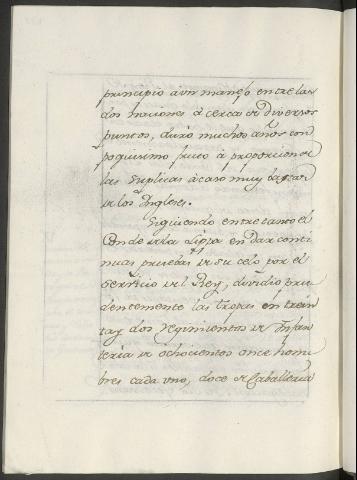 principio a un manejo entre las
dos Naciones á cerca de diversos
puntos, duró muchos años con
poquisimo fruto á proporcion de
las suplicas acaso muy baxas
de los Ingleses.
Siguiendo entretanto el
Conde de la Lippa en dar conti
nuas pruebas de su celo por el
Servicio del Rey, dividio pru
dentemente las tropas en trein
ta y dos regimientos de Infan
teria de ochocientos once hom
bres cada uno, doce de Caballeria